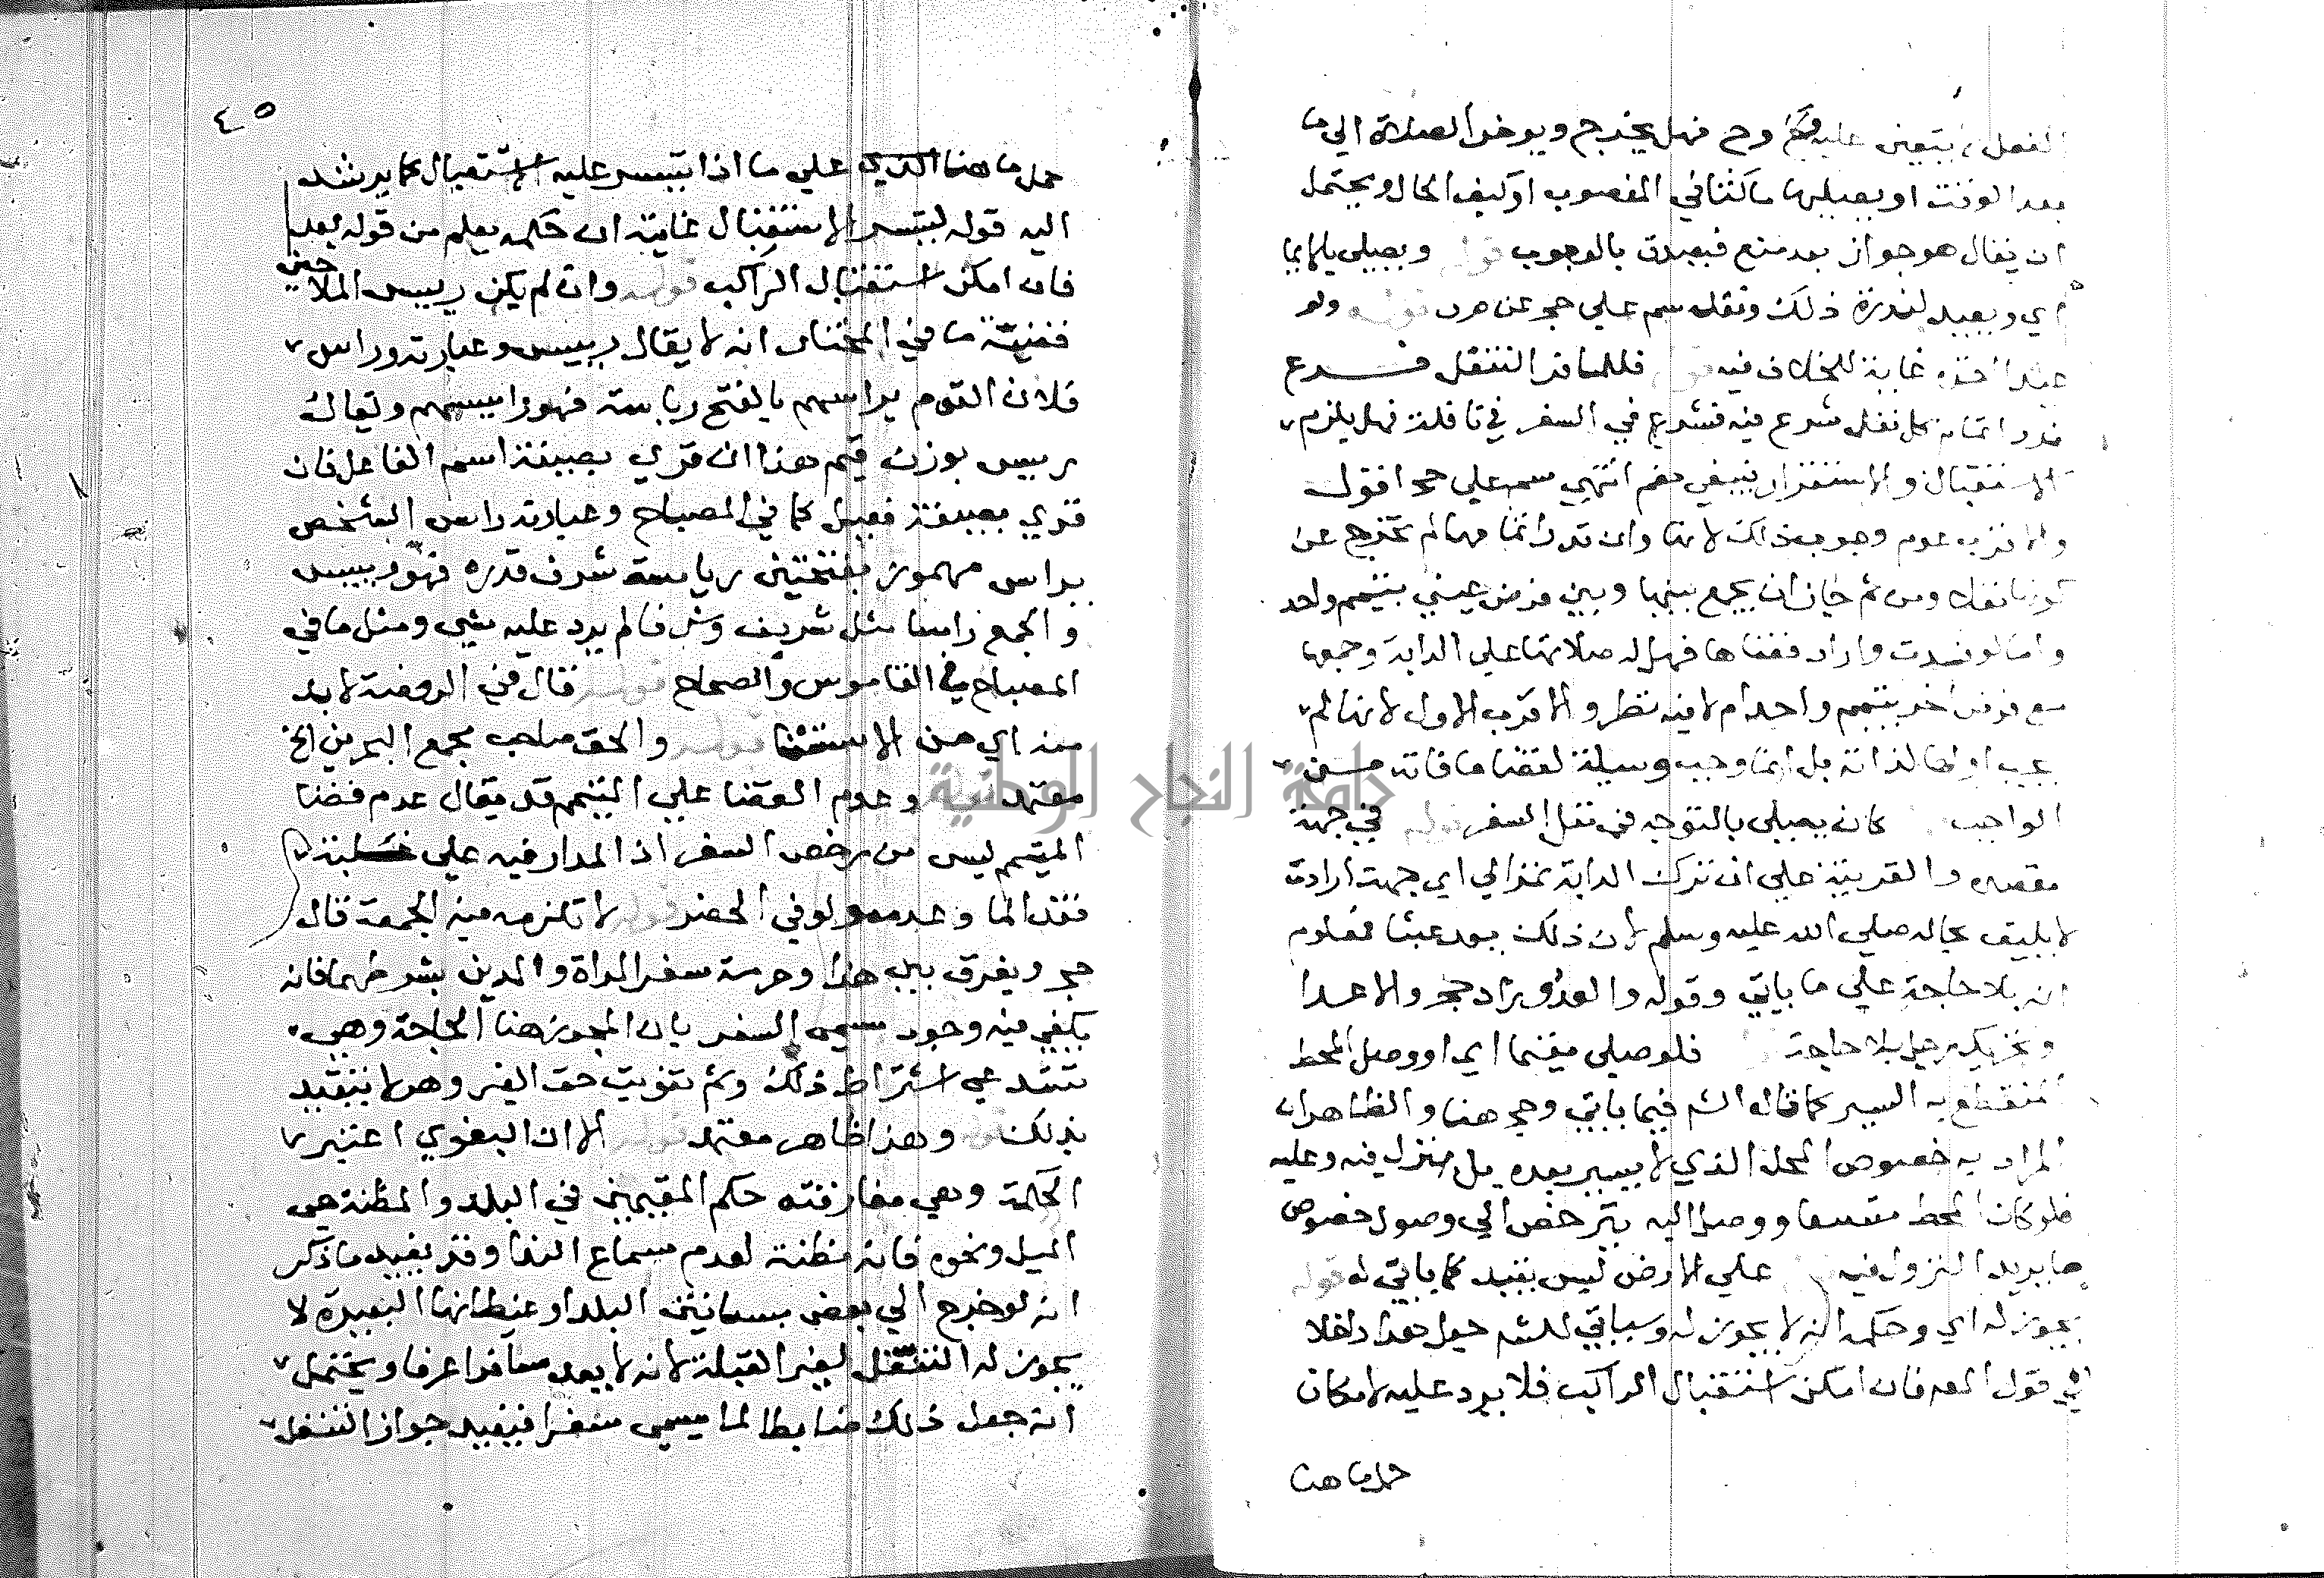 الفعل يتعين عليه وح فهل يخرج ويوخر الصلاة الي ما
بعد الوقت او يصليها ماكثا في المغصوب او كيف الحال ويحتمل
ان يقال هو جواز بعد منع فيصدق بالوجوب قوله ويصلي بالايما
اي ويعيد لندرة ذلك ونقله سم علي حج عن مر قوله ولو
غاية للخلاف فيه فللمسافر التنفل فرع
نذر اتمام كل نفل شرع فيه فشرع في السفر في نافلة فهل يلزمه
الاستقبال والاستقرار ينبغي نعم انتهي سم علي حج اقول
والاقرب عدم وجوب ذلك لانها وان نذر اتمامها لم تخرج عن
كونها نفلا ومن ثم جاز ان يجمع بينها وبين فرض عيني بتيمم واحد
واما لو فسدت واراد قضاها فهل له صلاتها علي الدابة وجمعها
مع فرض اخر بتيمم واحد ام لا فيه نظر والاقرب الاول لانها لم
يجب لذاته بل انما وجب وسيلة لقضا ما فاته من
الواجب كان يصلي بالتوجه في نفل السفر قوله في جهة
مقصده والقرينة علي ان ترك الدابة تمر الي اي جهة ارادت
لا يليق بحاله صلي الله عليه وسلم لان ذلك يعد عبثا فعلوم
انه بلا حاجة علي ما ياتي وقوله والعدو زاد حج والاعدا
وتحريك رجل بلا حاجة فلو صلي مقيما او وصل المحط
المنقطع به السير كما قاله الشم فيما ياتي وحج هنا والظاهر ان
المراد به خصوص المحل الذي لا يسير بعده بل ينزل فيه وعليه
فلو كان المحط متسعا ووصل اليه يترخص الي وصول خصوص
ما يريد النزول فيه علي الارض ليس بقيد كما ياتي له قوله
يجوز له اي وحكمه انه لا يجوز له وسياتي للشم جعل هذا داخلا
في قول المص فان امكن استقبال الراكب فلا يرد عليه لامكان
حمل ما هنا
٤٥
حمل ما هنا الذي علي ما اذا تيسر عليه الاستقبال كما يرشد
اليه قوله ليتيسر الاستقبال غايته ان حكمه يعلم من قوله بعد
فان امكن استقبال الراكب قوله وان لم يكن رييس الملاحين
قضيته ما في المختار انه لا يقال رييس وعبارته وراس
فلان القوم يراسهم بالفتح رياسة فهو راييسهم ويقال
رييس بوزن قيم هذا ان قري بصيغة اسم الفاعل فان
قري بصيغة فعيل كما في المصباح وعبارته راس الشخص
يراس مهموز بفتحتين رياسة شرف قدره فهو رييس
والجمع راسا مثل شريف وشرفا لم يرد عليه شي ومثل ما في
المصباح في القاموس والصحاح قوله قال في الروضة لا بد
منه اي من الاستثنا قوله والحق صاحب مجمع البحرين الخ
معتمد قوله وعدم القضا علي المتيمم قد يقال عدم قضا
المتيمم ليس من رخص السفر اذ المدار فيه علي غلبة
فقد الما وعدمه ولو في الحضر قوله لا تلزمه فيه الجمعة قال
حج ويفرق بين هذا وحرمة سفر المراة والمدين بشرطهما فانه
يكفي فيه وجود مسمي السفر بان المجوز هنا الحاجة وهي
تستدعي اشتراط ذلك وثم تفويت حق الغير وهو لا يتقيد
بذلك قوله وهذا ظاهر معتمد قوله الا ان البغوي اعتبر
الحكمة وهي مفارقته حكم المقيمين في البلد والمظنة هي
الميل ونحوه فانه مظنة لعدم سماع الندا وقد يفيد ما ذكر
انه لو خرج الي بعض بساتين البلد او غيطانها البعيدة لا
يجوز له التنفل لغير القبلة لانه لا يعد مسافرا عرفا ويحتمل
انه جعل ذلك ضابطا لما يسمي سفرا فيفيد جواز التنفل
جامعة النجاح الوطنية